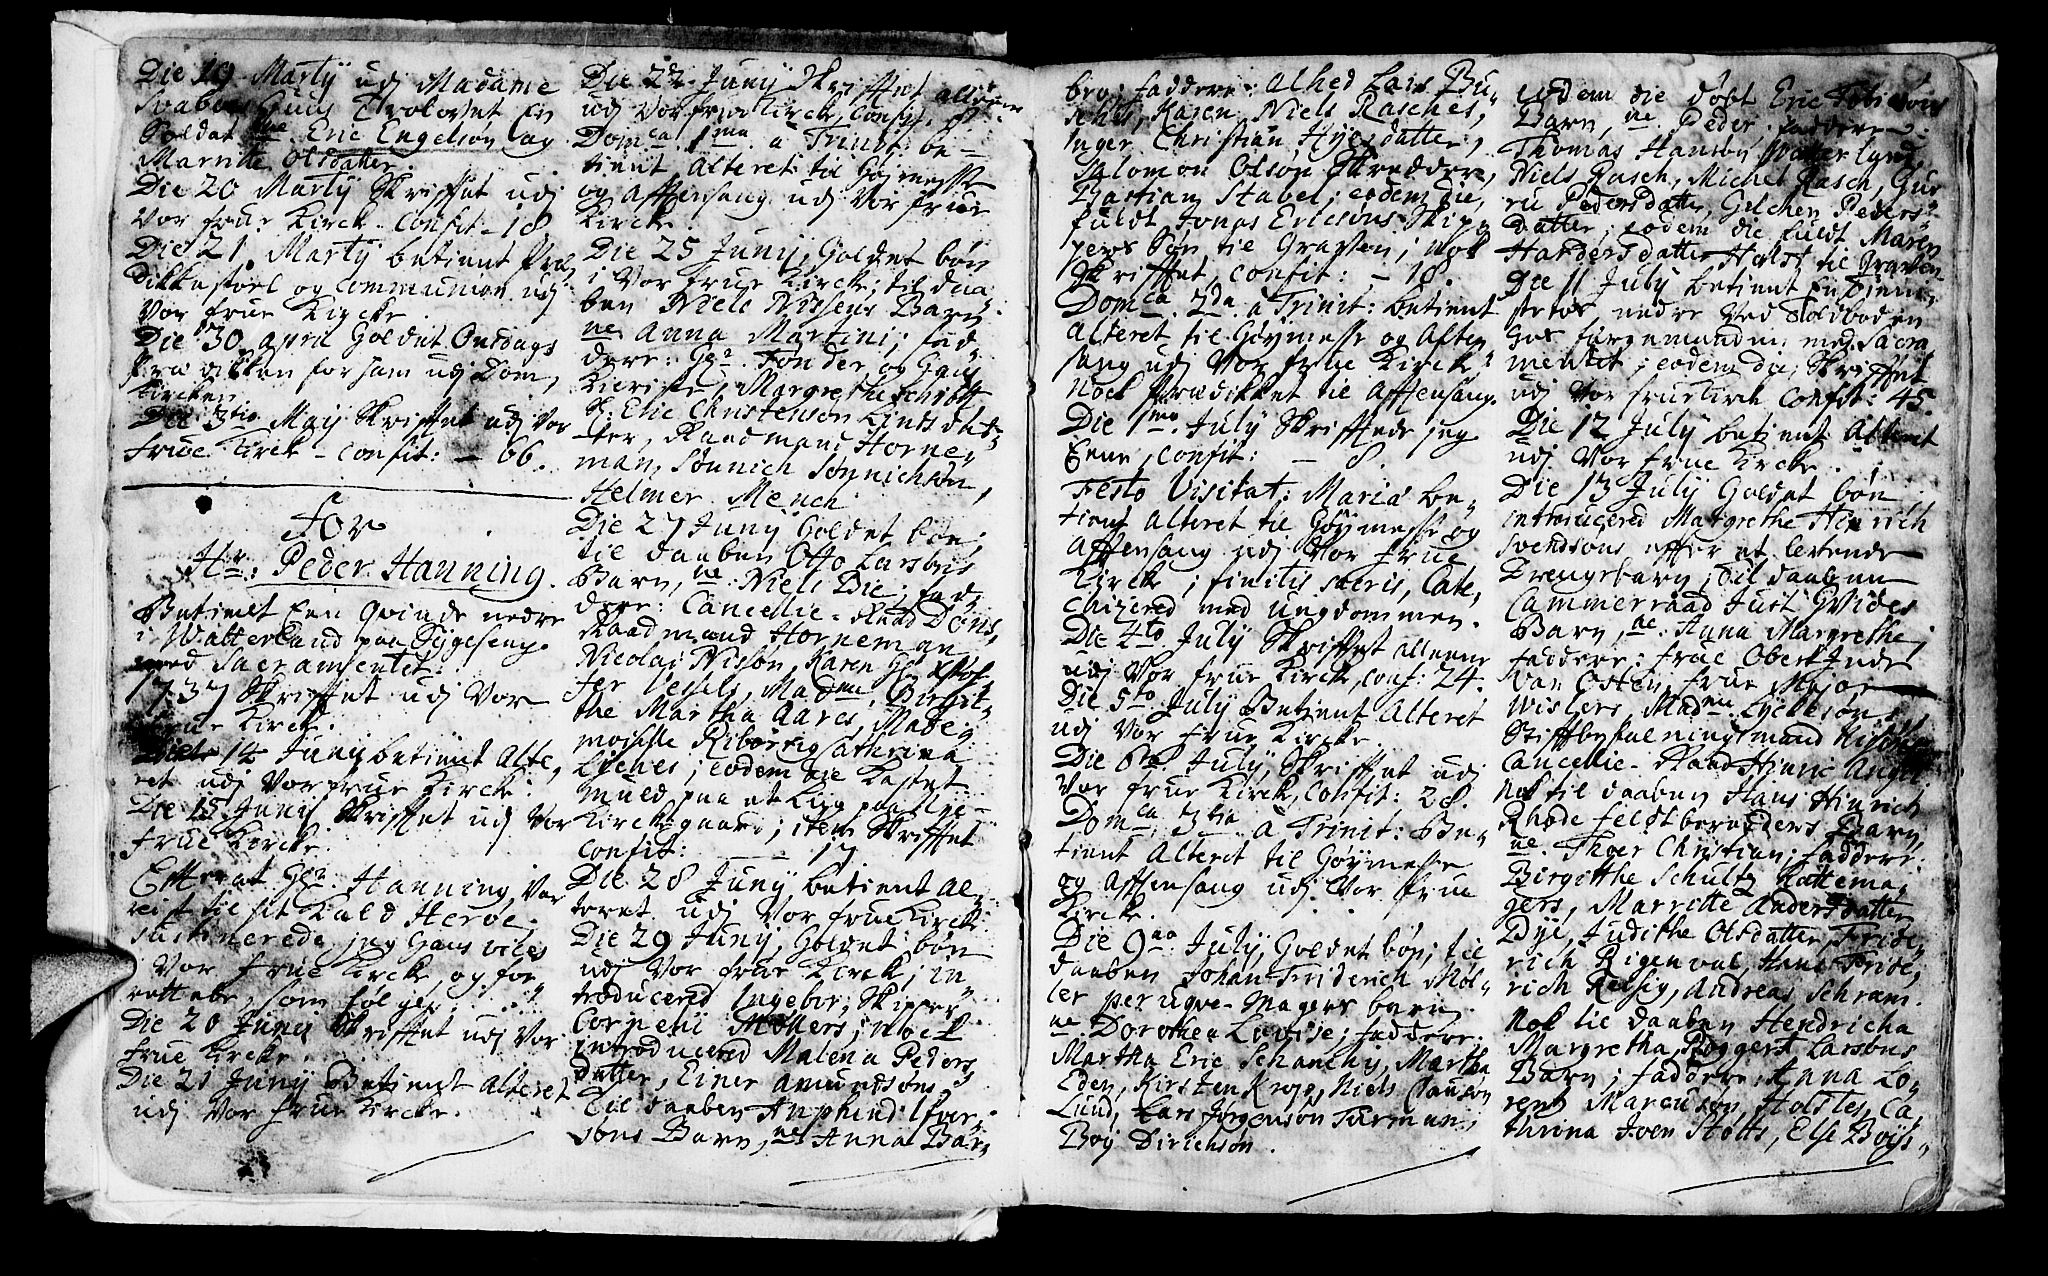 Die 19 Martÿ udj Madame
Svabers Huus Trolovet En
Soldat ne Eric Engelson og
Marrite Olsdatter
Die 20 Martÿ Skrifftet udj
Vor Frue Kirck Confit - 18
Die 21. Martÿ betient Præ,
dikkestoel og Communion udj
Vor Frue Kircke
Die 30 april Holdet Onsdags
Prædikken for ham udj Dom,
Kircken
Die 3tio Maÿ Skrifftet udj Vor
Frue Kirck - Confit: - 66.
For
Hr: Peder Hanning.
Betient Een Qvinde nedre
i Watterland paa Sÿgeseng
med Sacramentet.
1737 Skrifftet udj Vor
Frue Kircke.
Die 14 Junÿ betient Alte,
ret udj Vor Frue Kircke.
Die 15 Junÿ Skrifftet udj Vor
Frue Kircke.
Efter at Hr. Hanning Var
reist til sit Kald Herøe,
sustinerede jeg Hans vices
Vor Frue Kirck og for
rettede, som følger:
Die 20 Junÿ Skrifftet udj Vor
Frue Kircke.
Die 21 Junÿ Betient Alteret
udj Vor Frue Kircke.
Die 22 Junÿ Skrifftet alleene
udj Vor Frue Kirck, Confit:
Domca 1ma a Trinit: be-
tient Alteret til Høÿmesse
og Afftensang udj Vor Frue
Kircke.
Die 25 Junÿ, Holdet bøn
i Vor Frue Kircke; til daa,
ben Niels Nissens Barn
ne Anna Martini; Fad,
dere: Hr. Tønder og Hans
Kieriste, Margrethe Schiøtt
S. Elie Christenson Linds dat,
ter, Raadmand Horne,
man, Sønnich Sønnichsøn,
Helmer Mench
Die 27 Junÿ Holdet bøn,
til daaben Otto Larsøns
Barn, ne: Niels Die; Fad,
dere: Cancellie-Raad Dons,
Raadmand Horneman
Nicolaj Nissøn, Karen Hr. Kstof
fer Vessels, Madme Birgit,
the Martha Aares, Made,
moiselle Riborrig Cathrina
Lÿches; eodem die Kastet
Muld paa et Liig paa Nÿe
Kirckegaard; item Skrifftet
Confit: - 17
Die 28 Junÿ betient Al,
teret udj Vor Frue Kirck
Die 29 Junÿ, Holdet bøn
udj Vor Frue Kirck; in,
troducered Ingebor, Skipper
Cornelii Møllers; nock
introducered Malena Peders
datter, Einer Amundsøns
Til daaben Anphind Ifvar,
søns Barn, ne Anna Bar,
bra; Faddere: Alhed Lars Bu,
schs, Karen Niels Rasches,
Inger Christian Hÿesdatter,
Salomon Olson Skredder,
Bastian Stabel; eodem die,
fuldt Jonas Ericsøns Skip,
pers Søn til Graffven; nok
Skrifftet, Confit: - 18.
Domca. 2da. a Trinit: betient
Alteret til Høÿmesse og Aften
sang udj Vor Frue Kirck
Nock Prædikket til Afftensang.
Die 1mo. Julÿ Skrifftede jeg
Eene, Confit: - 8.
Festo Visitat: Mariæ be,
tient Alteret til Høÿmesse og
Afftensang udj Vor Frue
Kirck; finitis sacris, Cate,
chizered med Ungdommen.
Die 4to Julÿ Skrifftet alleene
udj Vor Frue Kircke, Conf: 24.
Die 5to Julÿ Betient Alteret
udj Vor Frue Kircke
Die 8 Julÿ, Skrifftet udj
Vor Frue Kirck, Confit: 28.
Domca. 3tia a Trinit: Be,
tient Alteret til Høÿmesse
og Afftensang udj Vor Frue
Kircke.
Die 9no Julÿ, Holdet bøn; til
daaben Johan Friderich Møl,
ler peruqve-Magers barn
ne Dorothea Lovise; Faddere:
Martha Eric Schanchÿ, Martha
Eden, Kirsten Krogs, Niels Clauson
Lund, Lars Jørgensøn Furman,
Boÿ Dirichsøn.
eodem die døbt Eric Tobiesøns
Barn, ne Peder. Faddere:
Thomas Hanson Watterland,
Niels Rasch, Michel Rasch, Gu,
ru Pedersdatter, Gelchen Peders,
datter; eodem die fuldt Maren
Handersdatter Holst til Graffven
Die 11 Julÿ betient En Tienne,
stetøs, nedre Ved Toldboden
hos furgemanden, med Sacra
mentet; eodem die, Skrifftet
udj Vor Frue Kirck Confit: 45.
Die 12 Julÿ betient Alteret
udj Vor Frue Kircke.
Die 13 Julÿ Holdet bøn
introducered Margrethe Hinrich
Svendsøns effter et levende
Drengebarn; Til daaben
Cammerraad Just Gvides
Barn, ne: Anna Margrethe;
Faddere: Frue Oberst Inde
van Osten, Frue Major
Wislers, Madm Lÿchesøn,
Stifftbefalningsmand Nissen
Cancellie-Raad Hinric Angel
Nok til daaben Hans Hinrich
Rhode Feldtberederes Barn,
ne. Thoer Christian; Faddere:
Birgitthe Schultz Hattema,
gers, Marrite Andersdatter
Bÿe, Judithe Olsdatter, Fride,
rich Rigenval, Hans Fride,
rich Relsig, Andreas Schram.
Nok til daaben Hendricha
Margretha, Roggert Larsøns
Barn; Faddere: Anna Lo,
rent Marcusøn, Holstes, Ca,
thrina Iven Stolts, Else Boÿs,